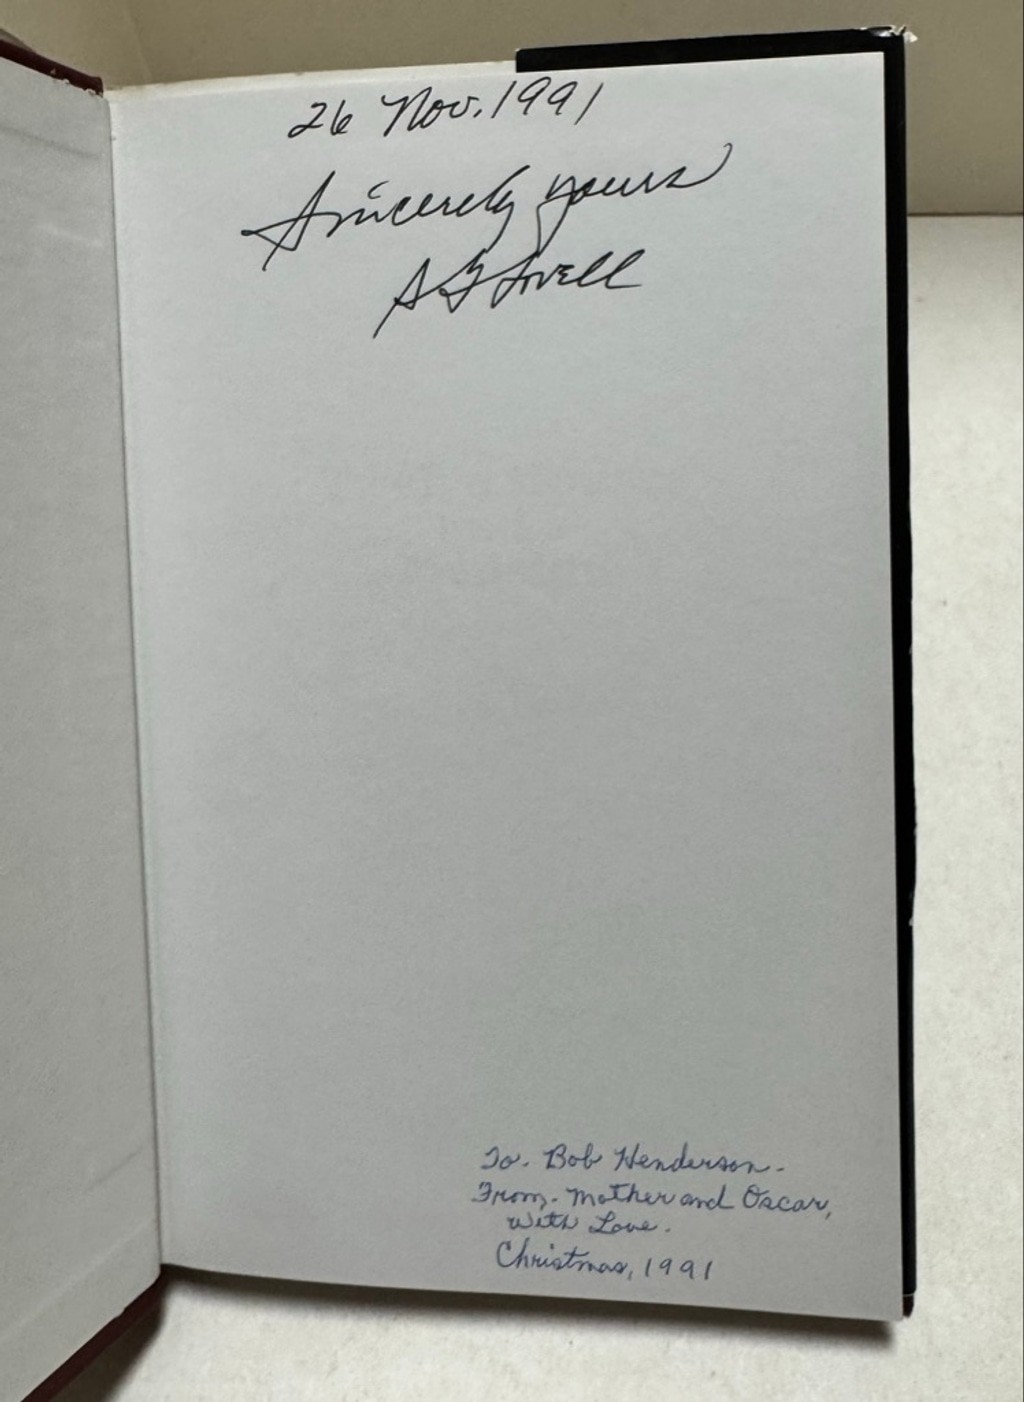 26 Nov. 1991
Sincerely yours
S G Lovell
To. Bob Henderson.
From. Mother and Oscar,
With Love.
Christmas, 1991